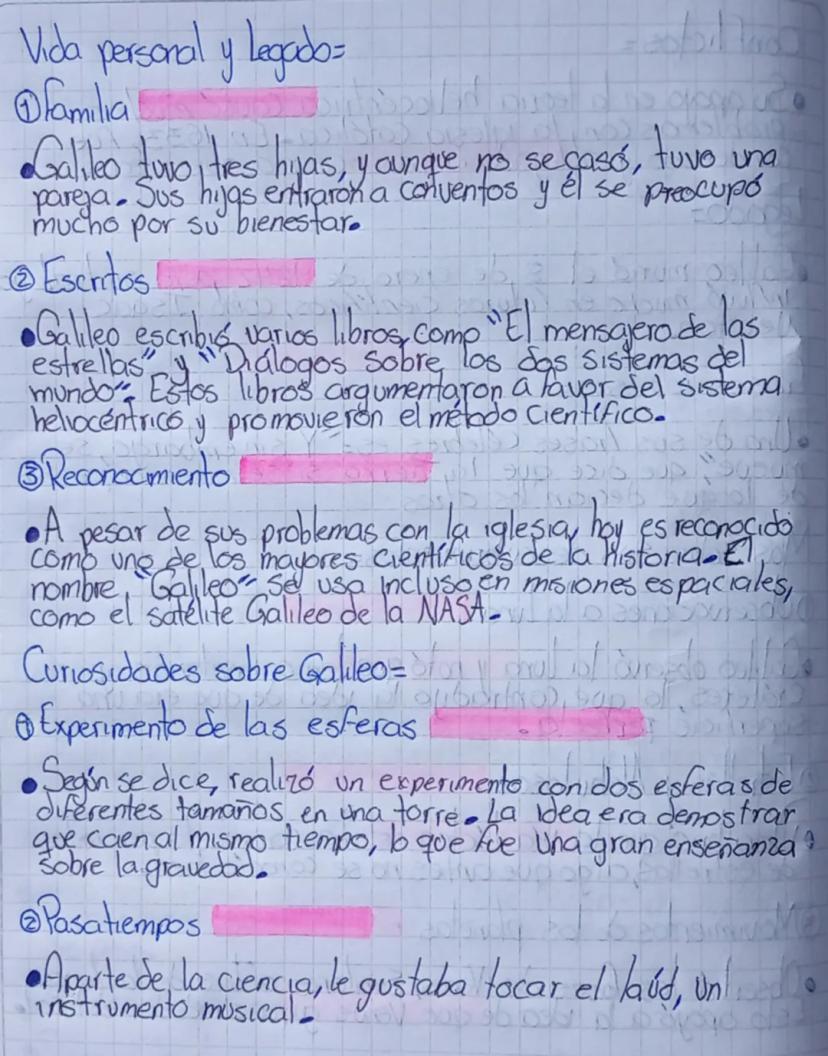 Vida personal y Legado=
①Familia
•Galileo tuvo tres hijas, y aunque no se casó, tuvo una
pareja. Sus hijas entraron a conventos y él se preocupó
mucho por su bienestar.
② Escritos
•Galileo escribió varios libros, como "El mensajero de las
estrellas" y "Diálogos sobre los dos sistemas del
mundo". Estos libros argumentaron a favor del sistema
heliocéntrico y promovieron el método científico.
③Reconocimiento
•A pesar de sus problemas con la iglesia, hoy es reconocido
como uno de los mayores científicos de la historia. El
nombre "Galileo" se usa incluso en misiones espaciales,
como el satélite Galileo de la NASA.
Curiosidades sobre Galileo=
① Experimento de las esferas
•Según se dice, realizó un experimento con dos esferas de
diferentes tamaños en una torre. La idea era demostrar
que caen al mismo tiempo, lo que fue una gran enseñanza
sobre la gravedad.
②Pasatiempos
•Aparte de la ciencia, le gustaba tocar el laúd, un
instrumento musical.